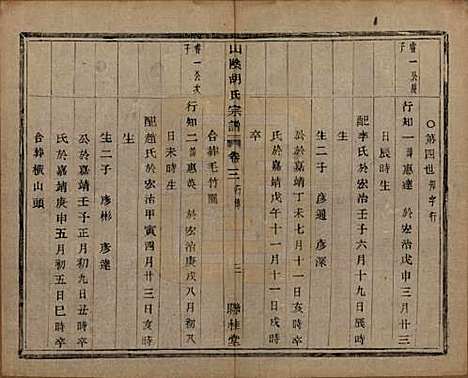 〇第四世知字行
睿一公長子
行知一諱惠達 於宏治戊申三月廿三
日辰時生
配李氏於宏治壬子六月十九日辰時
生二子 彥通 彥深
公於嘉靖丁未七月十一日亥時
氏於嘉靖戊午十一月十一日戌時
卒
合葬毛竹園
山陰胡氏宗譜 卷三 行傳 三 聯桂堂
睿一公次子
行知二諱惠英 於宏治庚戌八月初八
日未時生
配趙氏於宏治甲寅四月廿三日亥時
生
生二子 彥彬 彥達
公於嘉靖壬子正月初九日丑時卒
氏於嘉靖庚申五月初五日巳時卒
合葬橫山頭